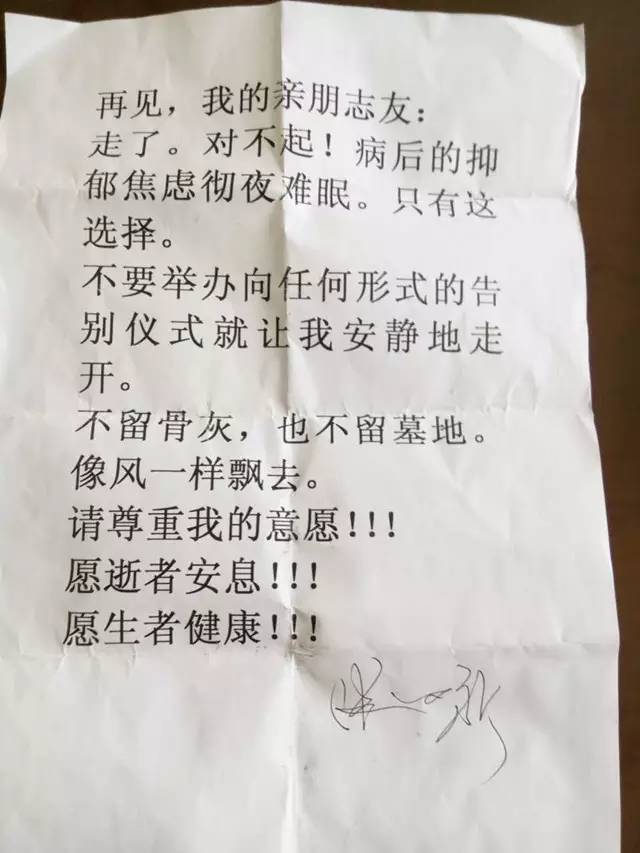 再见，我的亲朋志友：
走了。对不起！病后的抑
郁焦虑彻夜难眠。只有这
选择。
不要举办向任何形式的告
别仪式就让我安静地走
开。
不留骨灰，也不留墓地。
像风一样飘去。
请尊重我的意愿!!!
愿逝者安息!!!
愿生者健康!!!